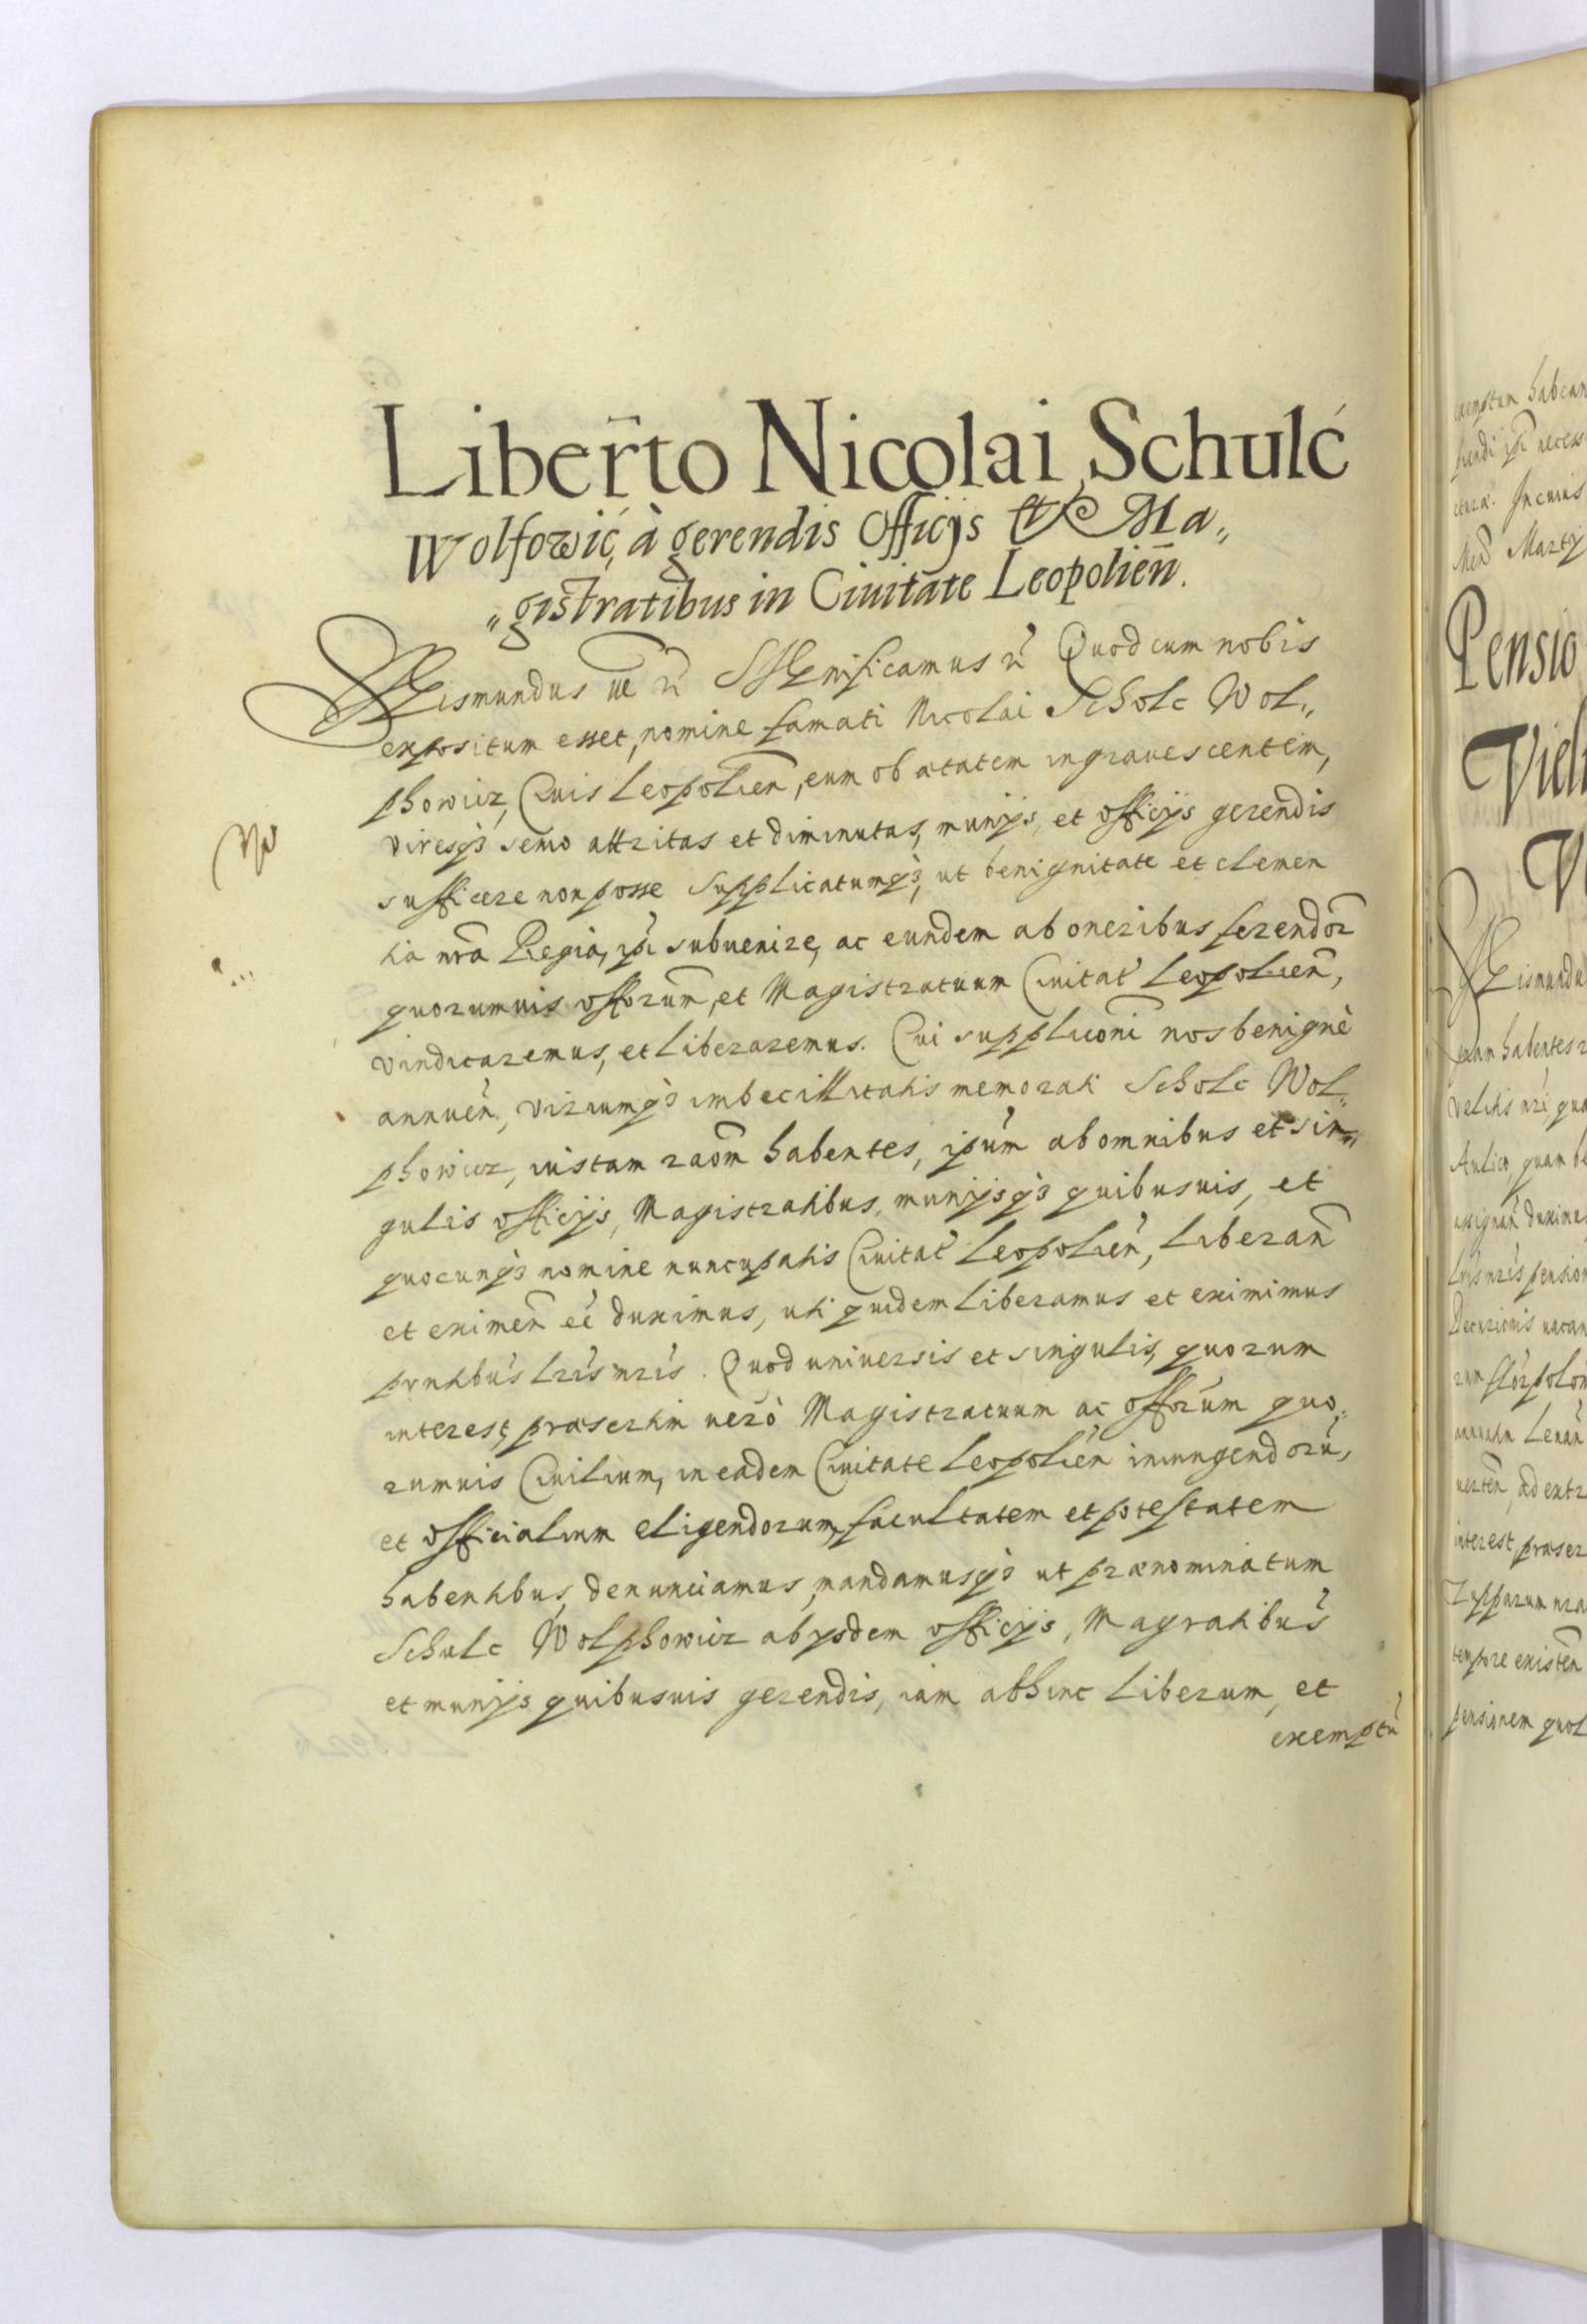 Liber̃to Nicolai Schulć
Wolfowić, à gerendis Officijs et Ma„
„gistratibus in Ciuitate Leopolien̄.
Sigismundus III &c. Significamus &c. Quod cum nobis
expositum esset, nomine famati Nicolai Scholc Wol„
phowicz, Ciuis Leopolien̄, eum ob ætatem ingrauescentem,
viresq3 senio attritas et diminutas, munijs, et officijs gerendis
sufficere non posse supplicatumq3, ut benignitate et clemen
tia nr̄a Regia, ipi subuenire, ac eundem ab oneribus ferendor̄
quorumuis offorum̄, et Magistratuum Ciuitat' Leopolien̄,
vindicaremus, et liberaremus. Cui suppliconi nos benignè
annuen̄, viriumq3 imbecillitatis memorati Scholc Wol„
phowicz, iustam raõm habentes, ipsum ab omnibus et sin„
gulis officijs, Magistratibus, munijsq3 quibusuis, et
quocunq3 nomine nuncupatis Ciuitat' Leopolien̄, liberan̄
et eximen̄ eē duximus, uti quidem liberamus et eximimus
prntibus lr̄is nr̄is. Quod uniuersis et singulis, quorum
interest, præsertim uerò Magistratuum ac offorum quo„
rumuis Ciuilium, in eadem Ciuitate Leopolien̄ iniungendorū,
et officialium eligendorum, facultatem et potestatem
habentibus, denunciamus, mandamusq3 ut prænominatum
Schulc Wolphowicz ab ijsdem officijs, Magratibus
et munijs quibusuis gerendis, iam abhinc liberum, et
exemptū
exemptum habean
Men̄ Martij
Pensio
Sigismundu
quam habentes
Aulico, quam
assignan̄ duxime
interest, præser
tempore existen̄
pensionem quot